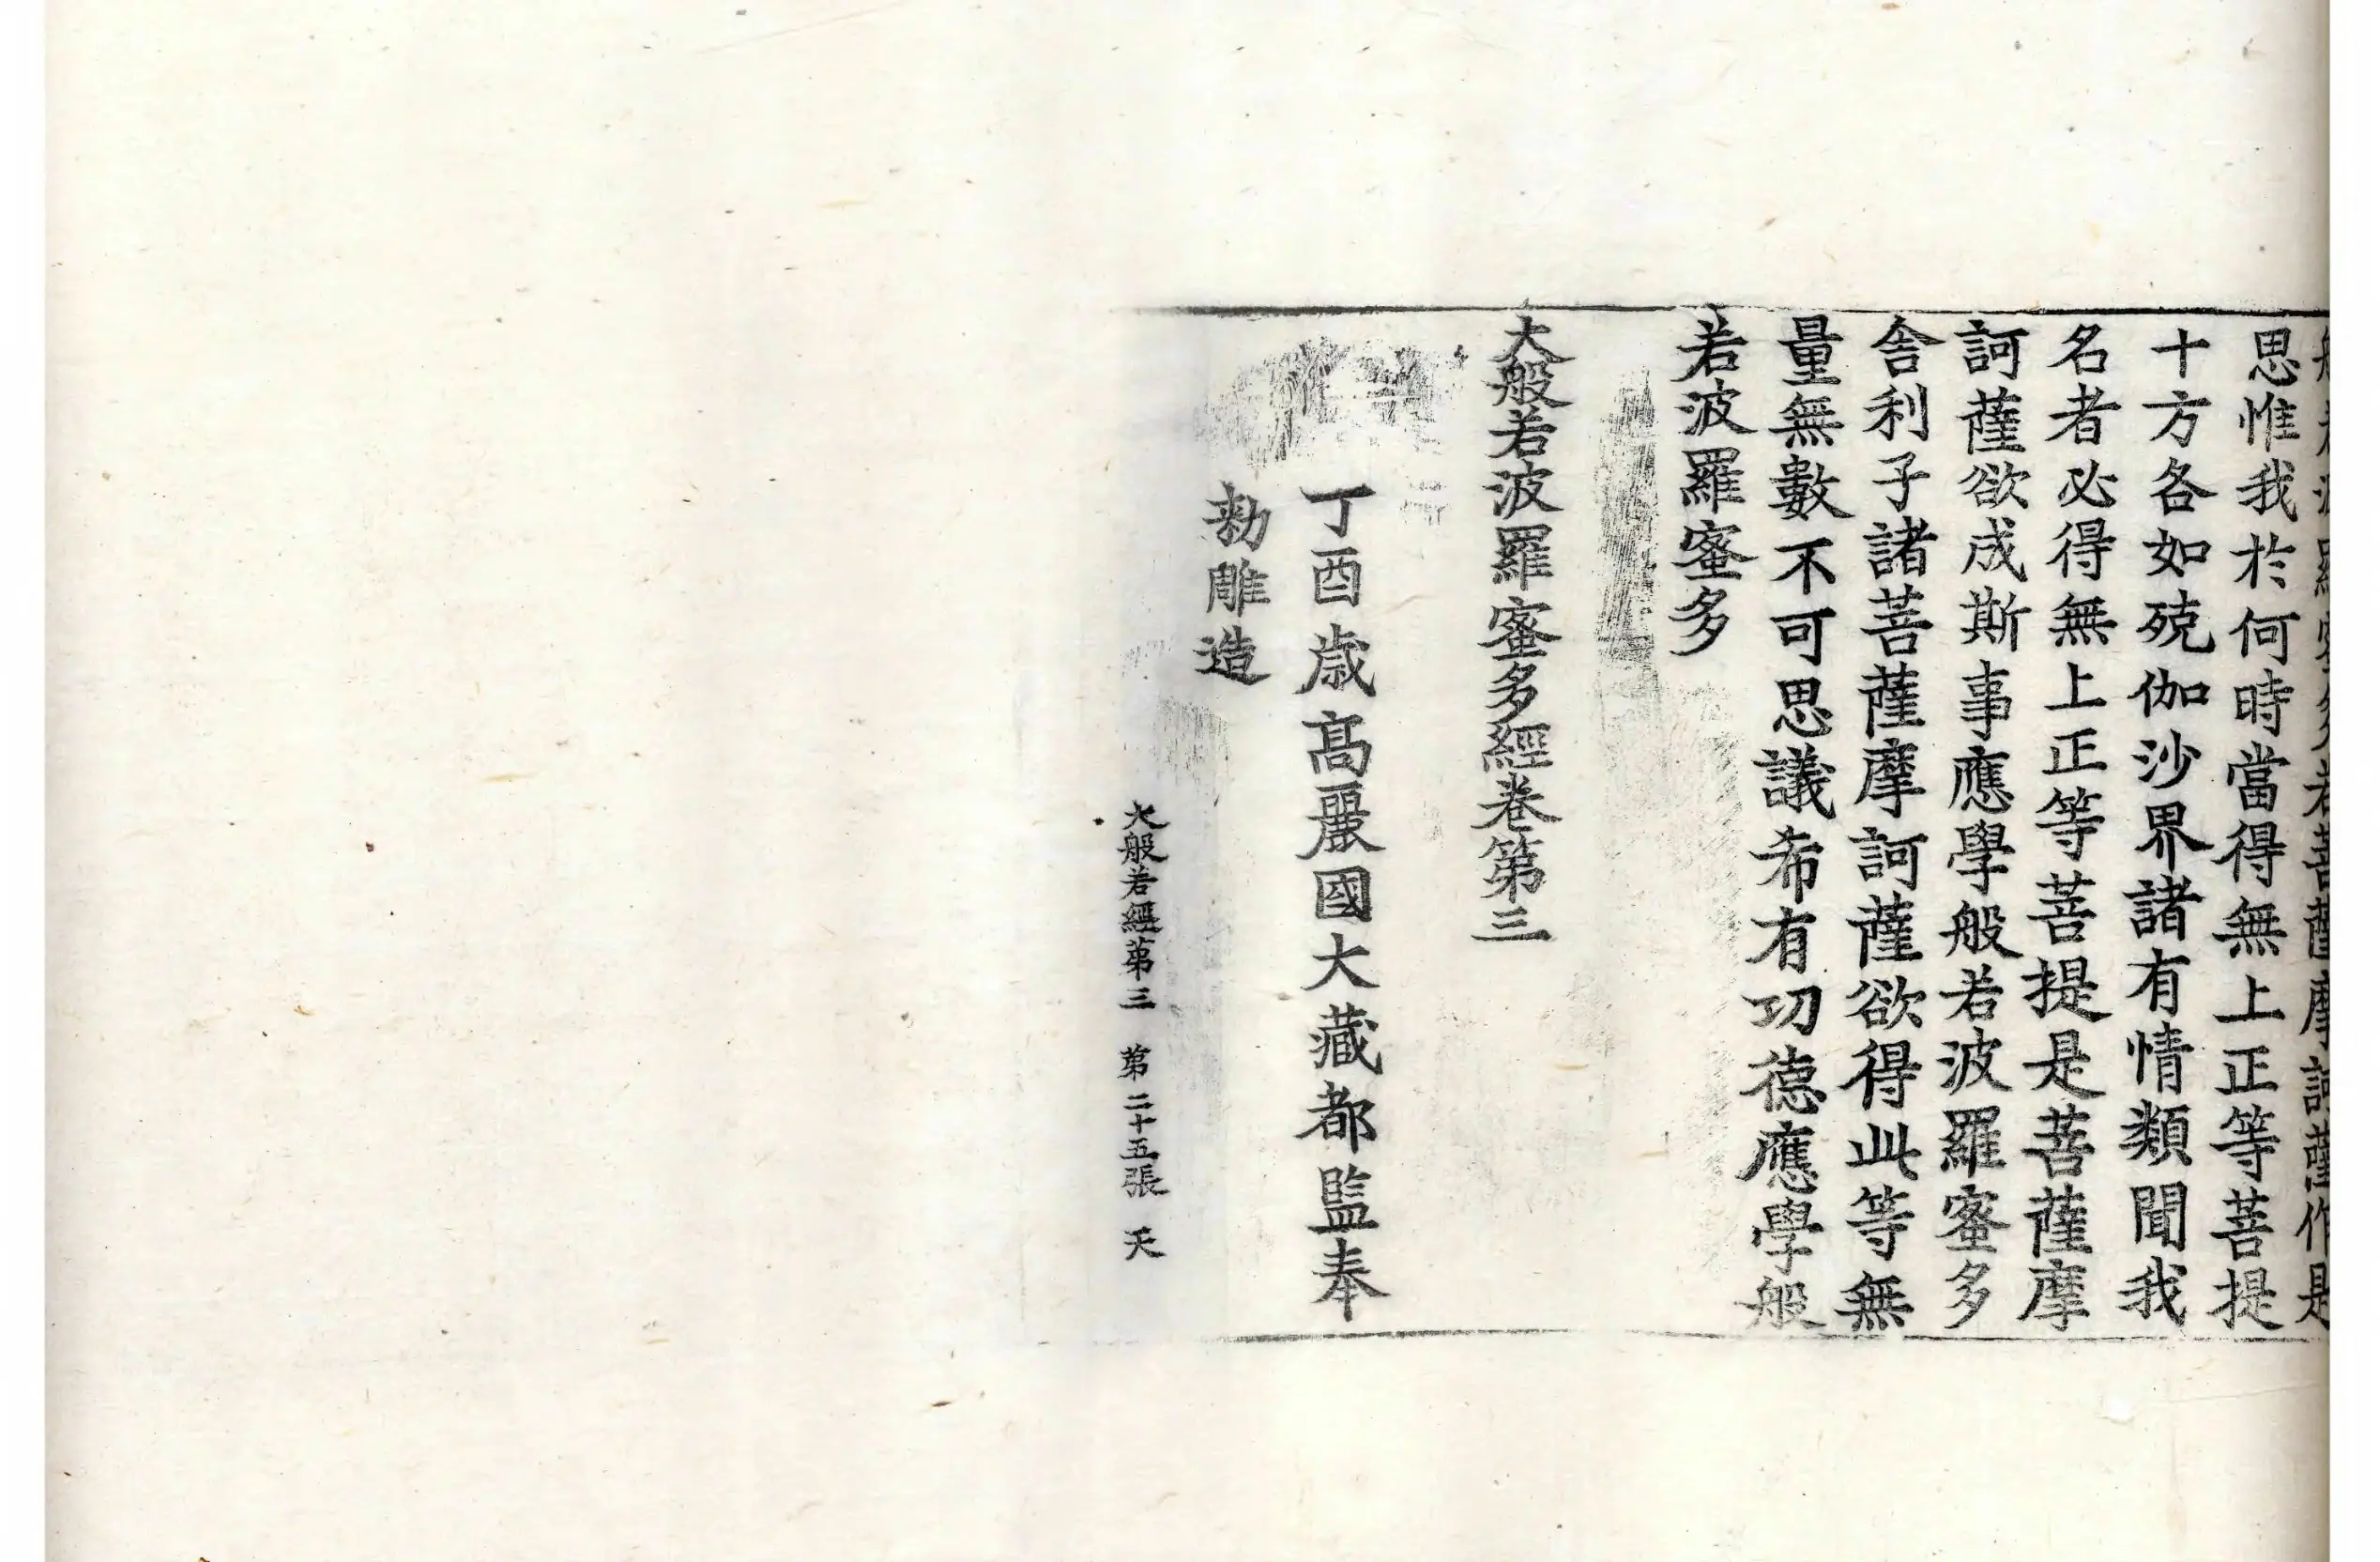 般若波羅蜜多若菩薩摩訶薩作是
思惟我於何時當得無上正等菩提
十方各如殑伽沙界諸有情類聞我
名者必得無上正等菩提是菩薩摩
訶薩欲成斯事應學般若波羅蜜多
舍利子諸菩薩摩訶薩欲得此等無
量無數不可思議希有功德應學般
若波羅蜜多
大般若波羅蜜多經卷第三
丁酉歲高麗國大藏都監奉
勅雕造
大般若經第三 第二十五張 天